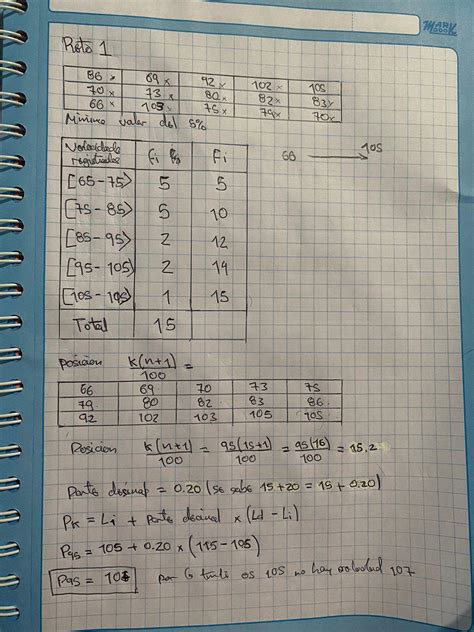 MARK
Reto 1
86 69 92 102 105
70 73 80 82 83
66 103 75 79 70
Minimo valor del 5%
Velocidade registrados fi Fi
66 → 105
[65-75⟩ 5 5
[75-85⟩ 5 10
[85-95⟩ 2 12
[95-105⟩ 2 14
[105- 1 15
Total 15
Posicion k(n+1)/100 =
66 69 70 73 75
79 80 82 83 86
92 102 103 105 105
Posicion k(n+1)/100 = 95(15+1)/100 = 95(16)/100 = 15.2
Parte desimal = 0.20 (se sabe 15+20 = 15+0.20)
PK = Li + Parte desimal × (Ld - Li)
P95 = 105 + 0.20 × (115-105)
P95 = por lo tanto es 105 no hay 107